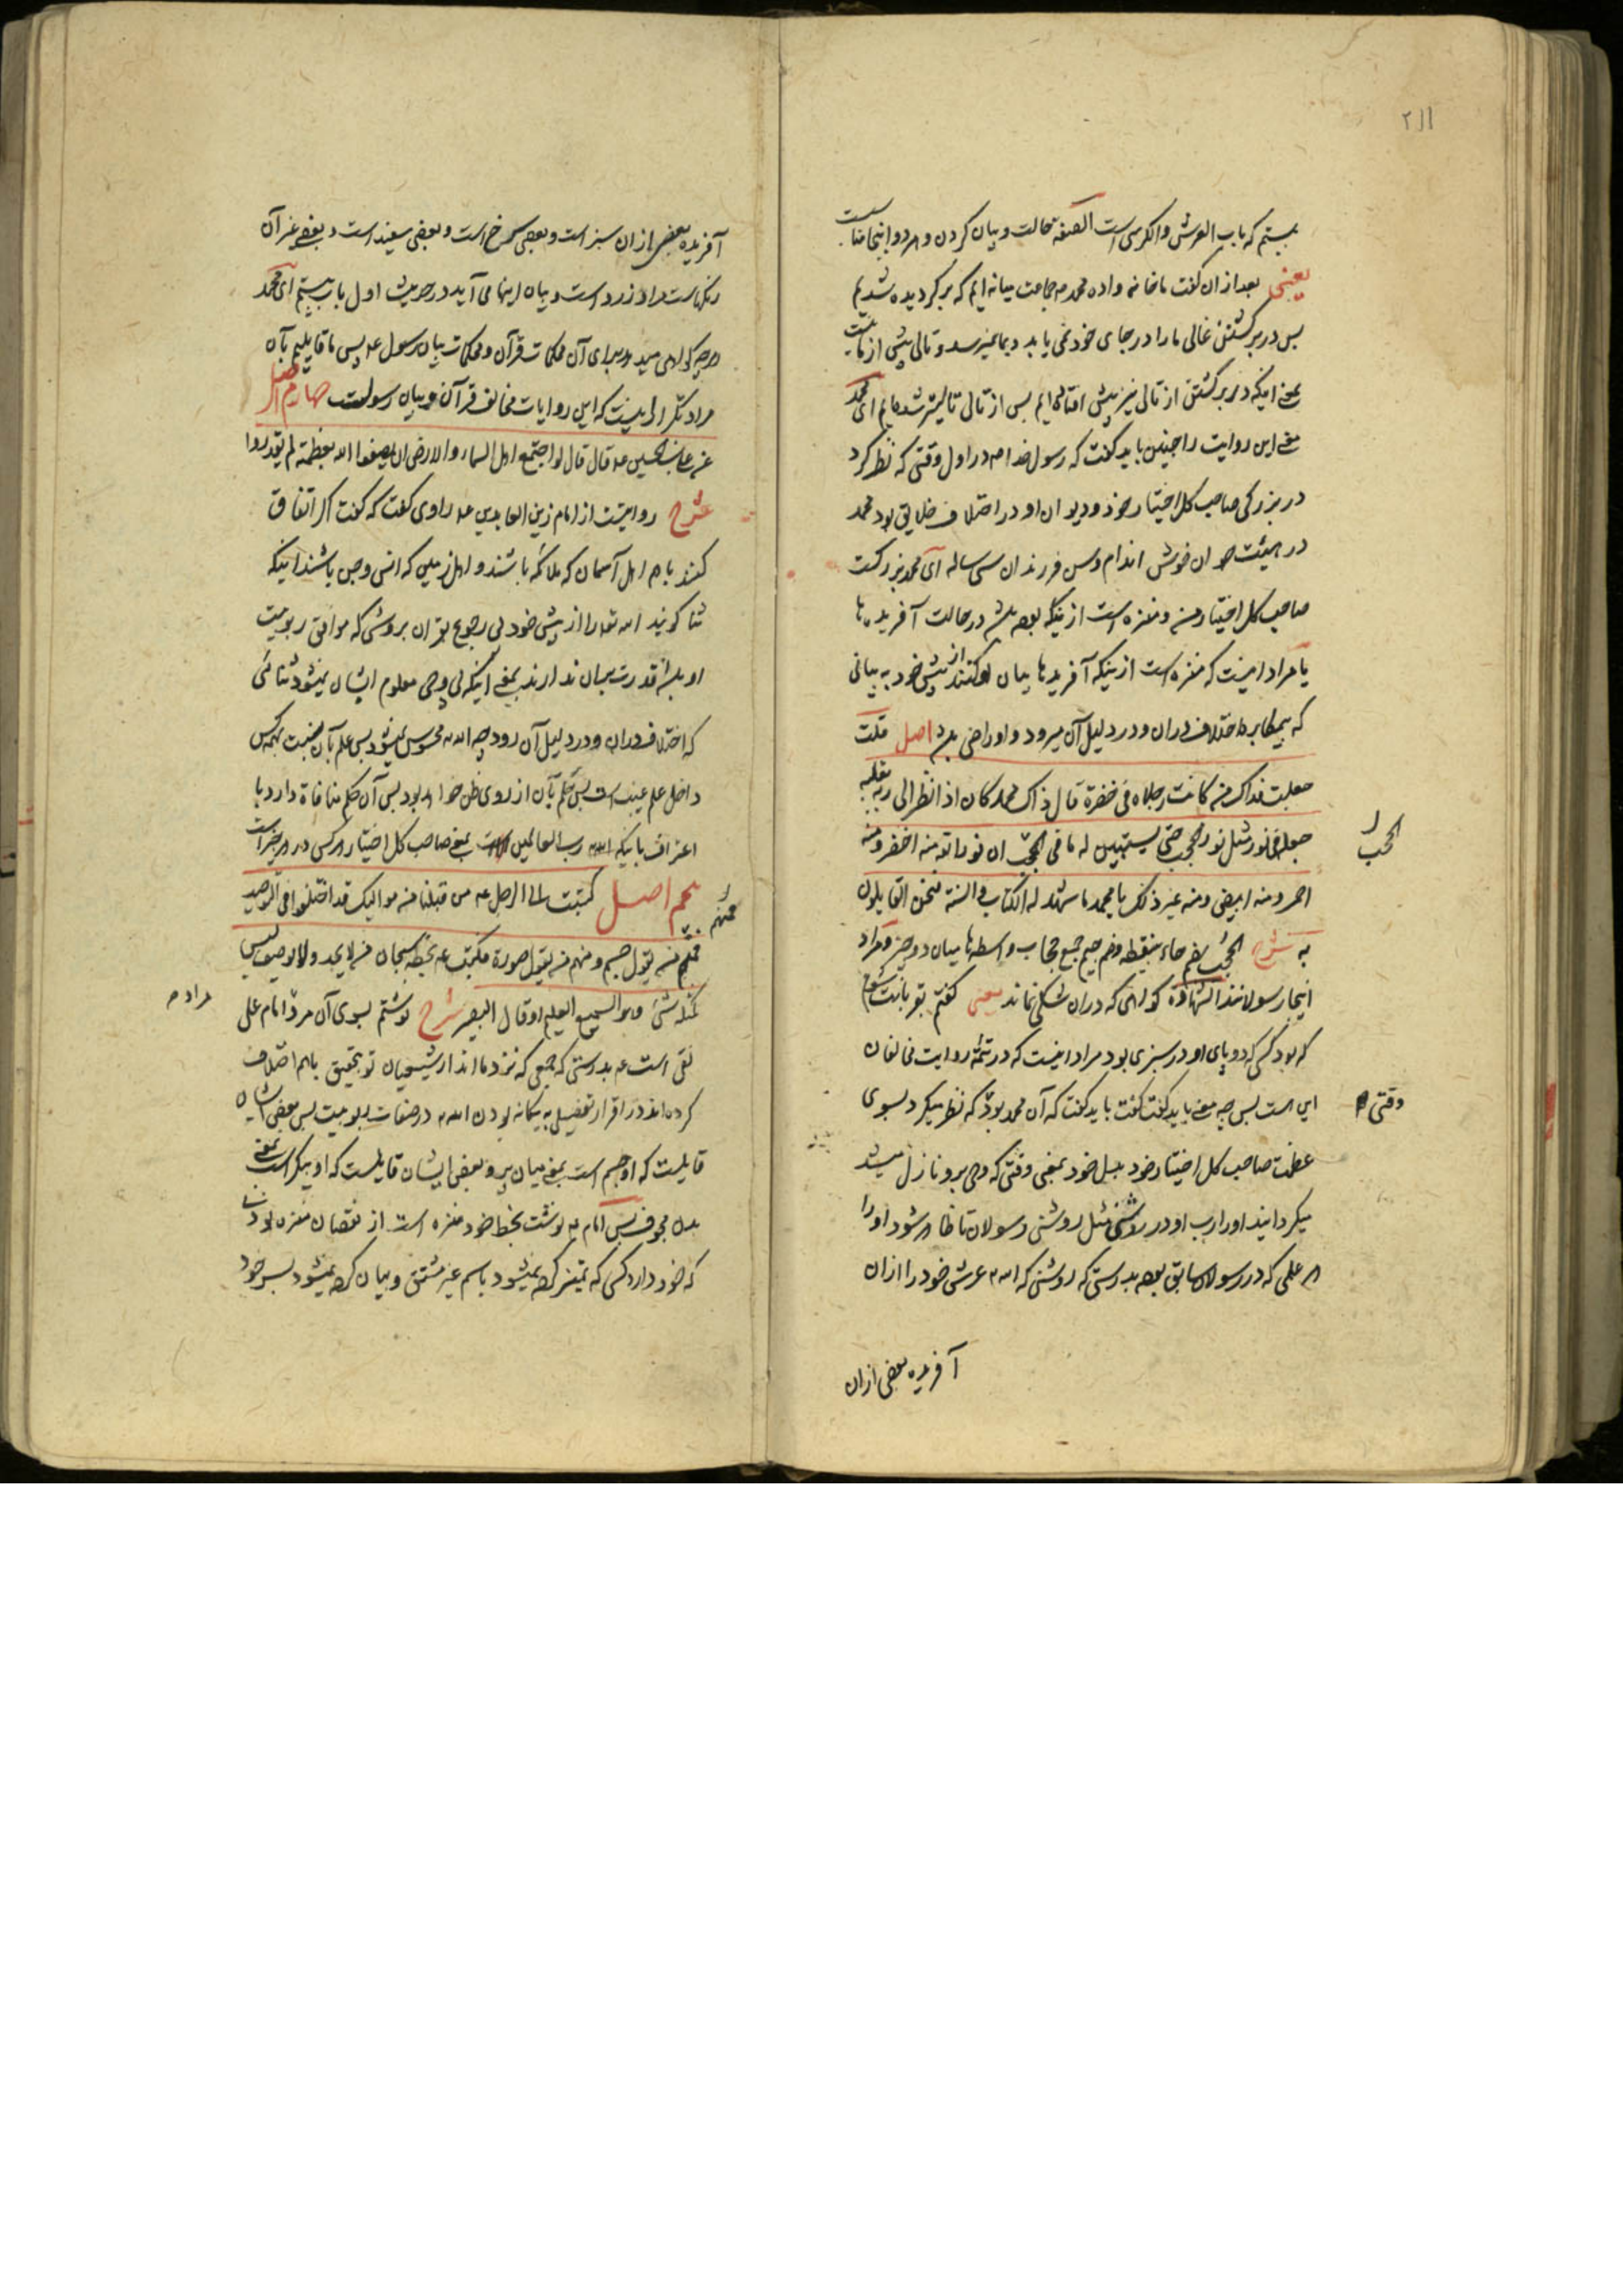 ۲۱۱
بیستم که باب العرش والکرسی است الصفة حالت و بیان کردن و هر دو اینجا مناسبست
یعنی بعد از ان گفت ما خانه واده محمد جماعت میانه ایم که برگردیده شدیم
پس در برگشتن غالی ما را در جای خود نمی یابد و بما نمیرسد و تالی پیش از ما نیست
یعنی اینکه در برگشتن از تالی نیز پیش افتاده ایم پس از تالی تالیتر شده ایم ای محمد
معنی این روایت را چنین باید گفت که رسول خدا در اول وقتی که نظر کرد
در بزرگی صاحب کل اختیار خود و دیو ان او در اختلاف خلایق بود محمد
در هیئت جوان خوش اندام و سن فرزندان سی ساله ای محمد بزرگست
صاحب کل اختیار من و منزه است ازینکه بوده باشد در حالت آفریده ها
یا مراد اینست که منزه است ازینکه آفریده ها بیان او کنند از پیش خود به بیانی
که اختلاف در ان و در دلیل آن میرود و او راضی باشد اصل قلت
جعلت فداک من کانت رجلاه فی خضرة قال ذاک محمد کان اذا نظر الی ربه بقلبه
جعله فی نور مثل نور الحجب حتی یستبین له ما فی الحجب ان نور الله منه اخضر ومنه
احمر ومنه ابیض ومنه غیر ذلک یا محمد ما شهد له الکتاب والسنة فنحن القایلون
به شرح الحجب بضم حاء بینقطه وضم جیم جمع حجاب واسطه ها میان دو چیز و مراد
اینجا رسولانند الشهادة گواهی که در ان شکی نماند یعنی گفتم قربانت شوم
که بود کسی که دو پای او در سبزی بود مراد اینست که در تتمه روایت مخالفان
این است پس چه معنی باید گفت گفت باید گفت که آن محمد بود که نظر میکرد بسوی
وقتی
عظمت صاحب کل اختیار خود بدل خود یعنی وقتی که وحی برو نازل میشد
میگردانید او را رب او در روشنی مثل روشنی رسولان تا ظاهر شود او را
هر علمی که در رسولان سابق بوده بدرستی که روشنی که الله عرش خود را از ان
آفریده بعضی از ان
الحجب
آفریده بعضی از ان سبز است و بعضی سرخ است و بعضی سفید است و بعضی غیر آن
رنگهاست مراد زرد است و بیان اینها می آید در حدیث اول باب بیستم ای محمد
هر چه گواهی میدهد برای آن محکمات قرآن و محکمات بیان رسول پس ما قایلیم بآن
مراد تکرار اینست که این روایات مخالف قرآن و بیان رسولست چهارم اصل
عن علی بن الحسین قال قال لو اجتمع اهل السماء والارض ان یصفوا الله بعظمته لم یقدروا
شرح روایتست از امام زین العابدین راوی گفت که گفت اگر اتفاق
کنند باهم اهل آسمان که ملائکه باشند و اهل زمین که انس و جن باشند اینکه
ثنا گویند الله تعالی را از پیش خود بی رجوع بقران بروشی که موافق ربوبیت
او باشد قدرت بر ان ندارند یعنی اینکه بی وحی معلوم ایشان نمیشود ثنائی
که اختلاف در ان و در دلیل آن رود چه الله محسوس نمیشود پس علم بآن نسبت بهمه کس
داخل علم غیب است پس حکم بآن از روی ظن خواهد بود پس آن حکم منافاة دارد با
اعتراف باینکه الله رب العالمین است یعنی صاحب کل اختیار هر کس در هر چیز است
پنجم اصل کتبت الی الرجل من قبلنا من موالیک قد اختلفوا فی التوحید
فمنهم
فمنهم من یقول جسم ومنهم من یقول صورة فکتب بخطه سبحان من لا یحد ولا یوصف لیس
کمثله شیء وهو السمیع العلیم او قال البصیر شرح نوشتم بسوی آن مرد امام علی
مراد
نقی است بدرستی که جمعی که نزد ما اند از شیعیان تو بتحقیق باهم اختلاف
کرده اند در اقرار تفصیلی به یگانه بودن الله در صفات ربوبیت پس بعضی ایشان
قایلست که او جسم است یعنی میان پر و بعضی ایشان قایلست که او پیکر است یعنی
بدن مجوف پس امام نوشت بخط خود منزه است از نقصان منزه بودن
که خود دارد کسی که تمییز کرده نمیشود باسم غیر مشتق و بیان کرده نمیشود بسر خود